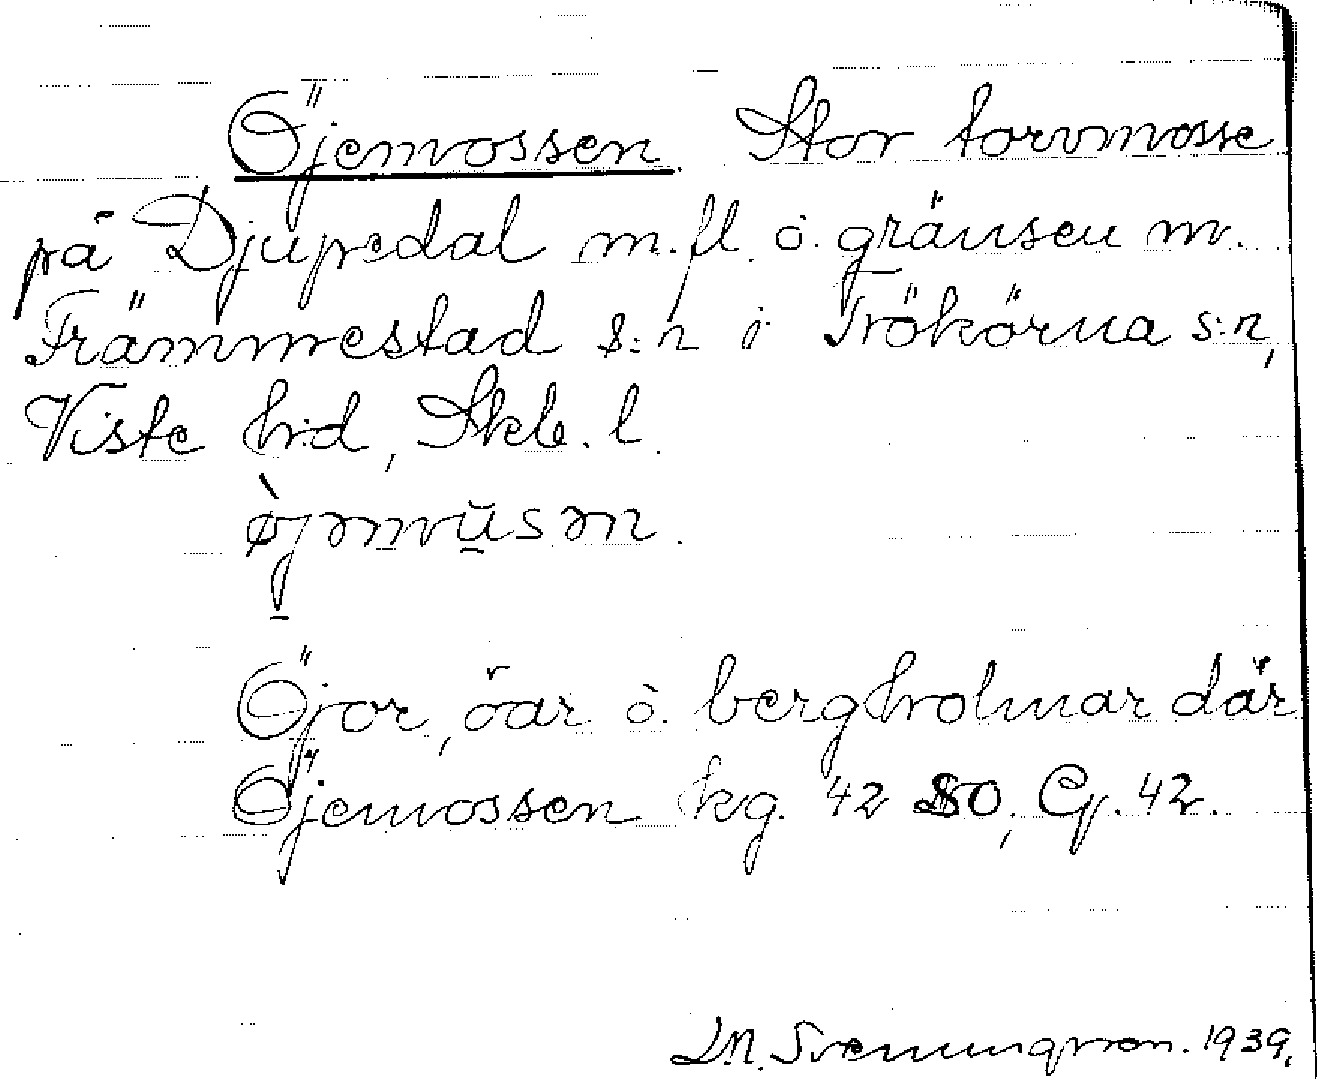 Öjemossen. Stor torvmosse
på Djupedal m.fl. ö. gränsen m.
Främmestad s:n i Trökörna s:n,
Viste hd, Skb. l.
öjemossen.
Öjor, öar o. bergholmar där
Öjemossen kg. 42 SO, Gg. 42.
1939.